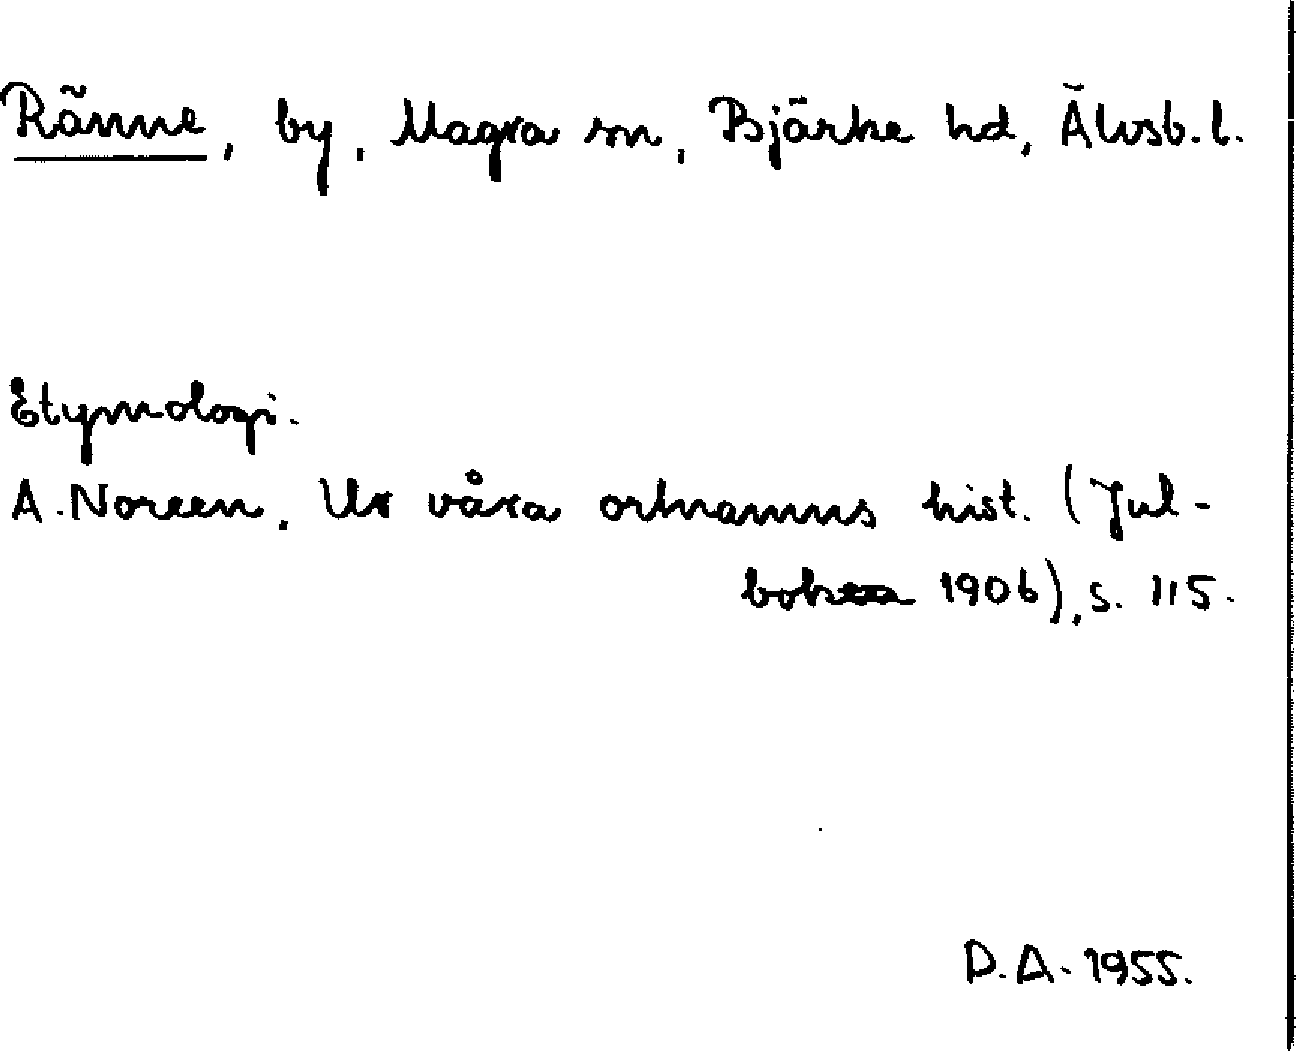 Ränne, by, Magra sn, Bjärke hd, Älvsb. l.
Etymologi.
A. Noreen, Ur våra ortnamns hist. (Jul-
boken 1906), s. 115.
D.A. 1955.